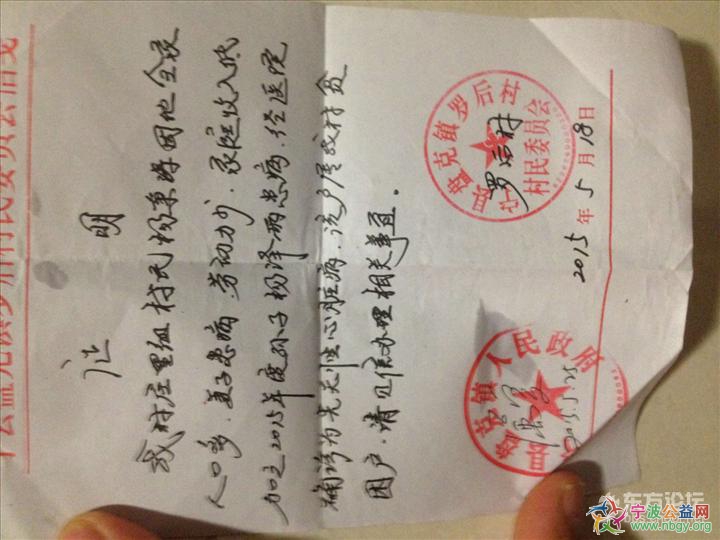 证明
我村庄里组村民杨东海因他全家
人口多，妻子患病，劳动力少，家庭收入低
加之2015年度孙子杨泽雨患病，经医院
确诊为先天性心脏病，该户属我村贫
困户，请见信办理相关事宜。
罗后村
村民委员会
2015年5月18日
人民政府
东方论坛
宁波公益网
www.nbgy.org